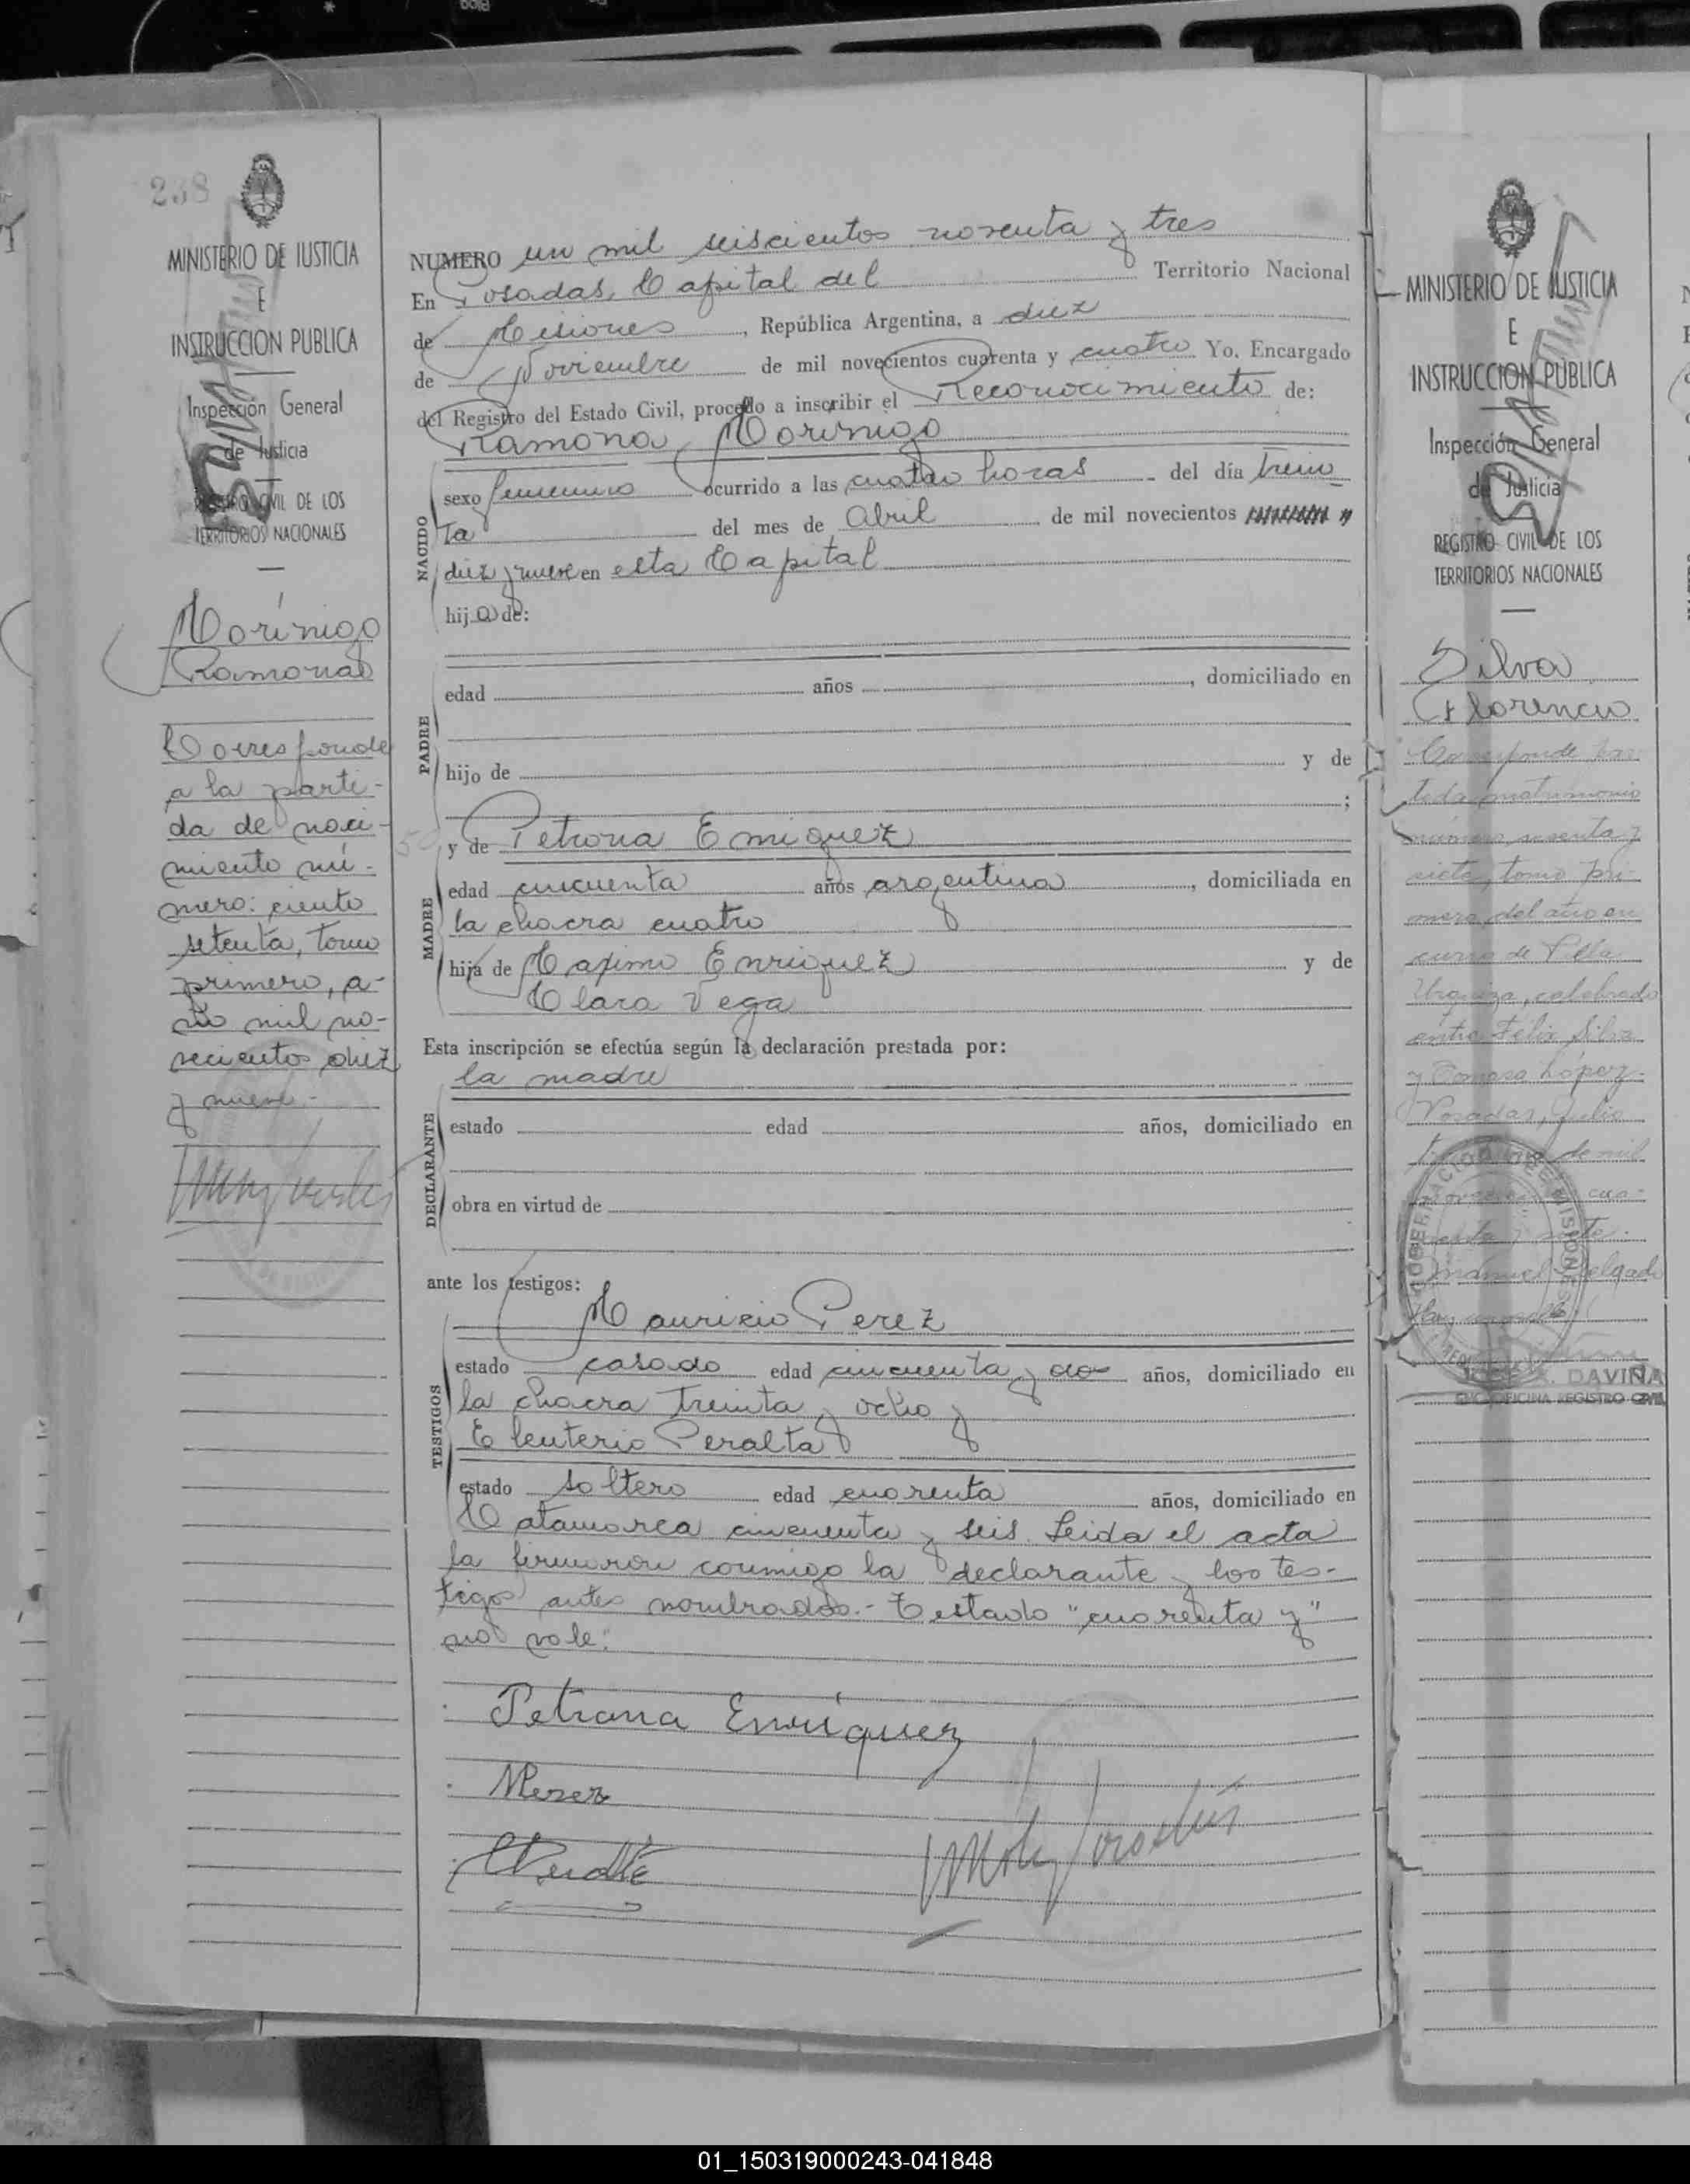 238
MINISTERIO DE JUSTICIA
E
INSTRUCCION PUBLICA
Inspección General
de Justicia
REGISTRO CIVIL DE LOS
TERRITORIOS NACIONALES
Morínigo
Ramona
Corresponde
a la parti-
da de naci-
miento nú-
mero: ciento
setenta, tomo
primero, a-
ño mil no-
vecientos diez
y nueve.-
NUMERO un mil seiscientos noventa y tres
En Posadas, Capital del Territorio Nacional
de Misiones, República Argentina, a diez
de Noviembre de mil novecientos cuarenta y cuatro Yo, Encargado
del Registro del Estado Civil, procedo a inscribir el Reconocimiento de:
Ramona Morinigo
NACIDO
sexo femenino ocurrido a las cuatro horas del día trein
ta del mes de Abril de mil novecientos
diez y nueve en esta Capital
hija de:
PADRE
edad años , domiciliado en
hijo de y de
;
MADRE
y de Petrona Emiquez
edad cincuenta años argentina, domiciliada en
la chacra cuatro
hija de Maximo Enriquez y de
Clara Vega
Esta inscripción se efectúa según la declaración prestada por:
la madre
DECLARANTE
estado edad años, domiciliado en
obra en virtud de
ante los testigos:
TESTIGOS
Mauricio Perez
estado casado edad cincuenta y dos años, domiciliado en
la chacra treinta y ocho y
Eleuterio Peralta
estado soltero edad cuarenta años, domiciliado en
Catamarca cincuenta y seis. Leida el acta
la firmaron conmigo la declarante y los tes-
tigos antes nombrados.- Testado "cuarenta y"
no vale.
Petrona Enriquez
MPerez
MINISTERIO DE JUSTICIA
E
INSTRUCCION PUBLICA
Inspección General
de Justicia
REGISTRO CIVIL DE LOS
TERRITORIOS NACIONALES
Silva
Florencio
Corresponde par
tida matrimonio
número sesenta y
siete, tomo pri-
mero del año en
curso de Villa
Urquiza, celebrado
entre Félix Silva
y Tomasa López.
Posadas, Julio
de mil
cua-
renta y siete.
Manuel Delgado
JOSE A. DAVIÑA
OFICINA REGISTRO CIVIL
01_150319000243-041848